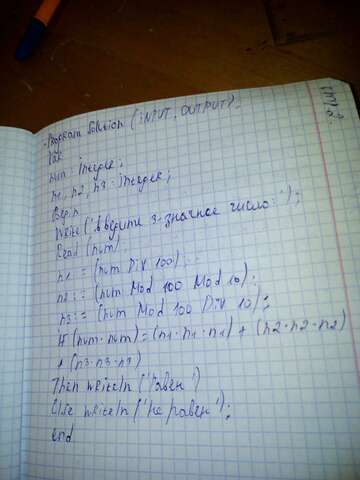 Program Solution (INPUT, OUTPUT);
Var
num: integer;
n1, n2, n3: integer;
Begin
Write('Введите 3-значное число: ');
Read (num)
n1:= (num Div 100);
n2:= (num Mod 100 Mod 10);
n3:= (num Mod 100 Div 10);
If (num·num)=(n1·n1·n1) + (n2·n2·n2)
+ (n3·n3·n3)
Then writeln ('Равен')
Else writeln ('Не равен');
end